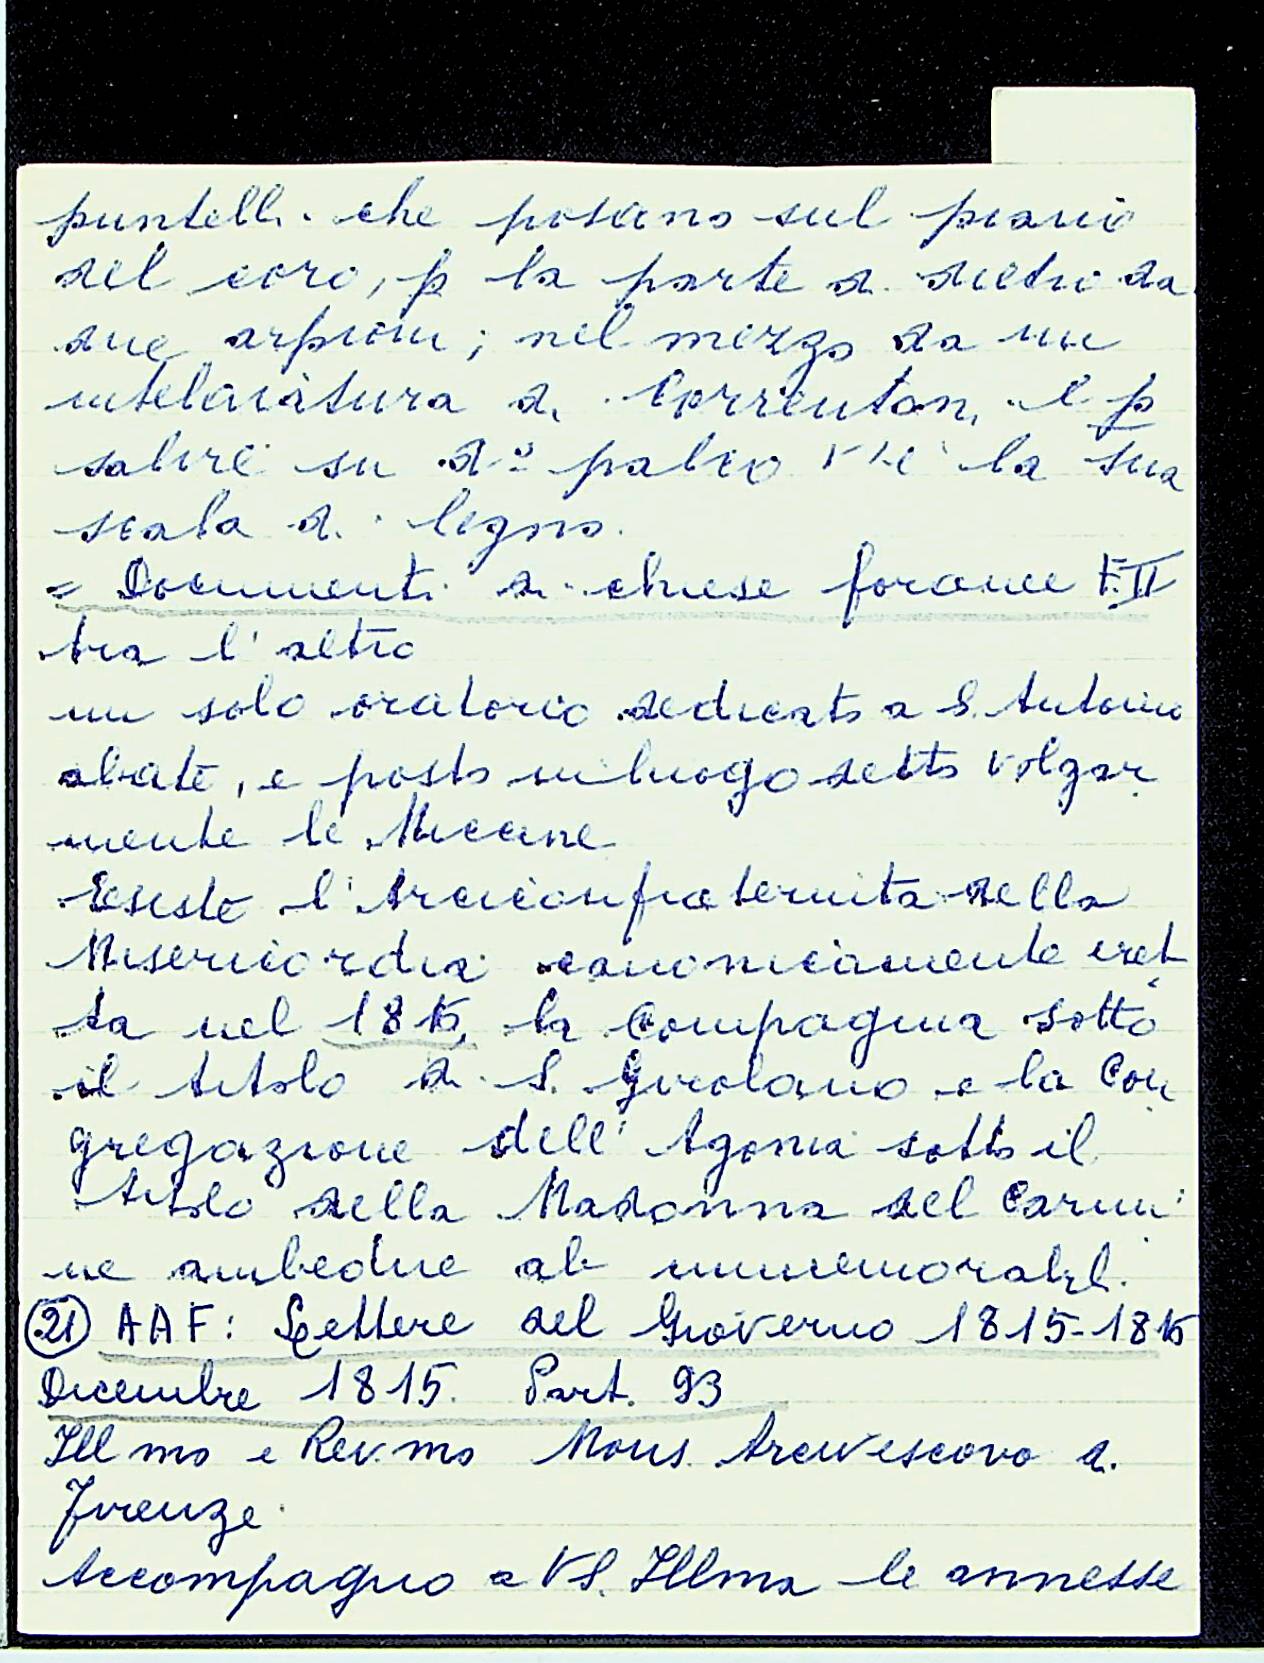 puntelli che posano sul piano
del coro, p la parte di dietro da
due arpioni; nel mezzo da un
intelaiatura di Correntoni e p
salire su do palco v'è la sua
scala di legno.
= Documenti di chiese foranee F. II
tra l'altro
un solo oratorio dedicato a S. Antonio
abate, e posto in luogo detto volgar
mente le Miccine
Esiste l'Arciconfraternita della
Misericordia canonicamente eret
ta nel 18 la Compagnia sotto
il titolo di S. Girolamo e la Con
gregazione dell'Agonia sotto il
titolo della Madonna del Carmi
ne ambedue ab immemorabili.
21 AAF: Lettere del Governo 1815-1816
Dicembre 1815. Part. 93
Ill mo e Rev.mo Mons. Arcivescovo di
Firenze.
Accompagno a VS. Illma le annesse